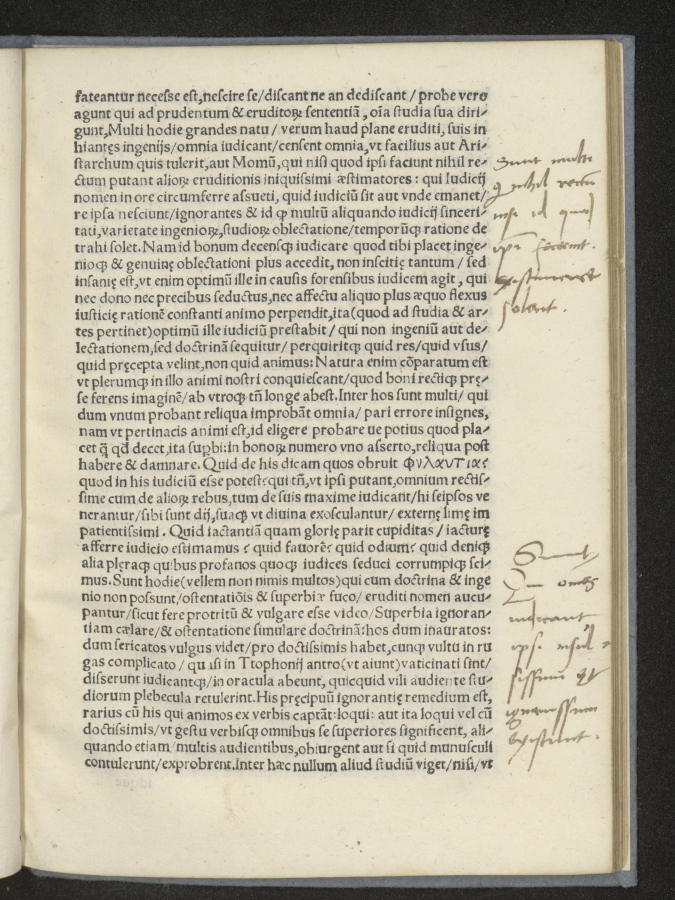 fateantur necesse est,nescire se/discant ne an dediscant / probe vero
agunt qui ad prudentum & eruditoꝝ sententiã , oĩa studia sua diri⸗
gunt,Multi hodie grandes natu / verum haud plane eruditi, suis in
hiantęs ingenijs/omnia iudicant/censent omnia,vt facilius aut Ari⸗
starchum quis tulerit,aut Momũ,qui nisi quod ipsi faciunt nihil re⸗
ctum putant alioꝝ eruditionis iniquissimi æstimatores : qui Iudicij
nomen in ore circumferre assueti, quid iudiciũ sit aut vnde emanet/
re ipsa nesciunt/ignorantes & id ꝙ multũ aliquando iudicij sinceri⸗
tati,varietate ingenioꝝ,studioꝝ oblectatione/temporũꝙ ratione de
trahi solet. Nam id bonum decensꝙ iudicare quod tibi placet inge⸗
nioꝙ & genuinę oblectationi plus accedit, non inscitię tantum / sed
insanię est,vt enim optimũ ille in causis forensibus iudicem agit , qui
nec dono nec precibus seductus,nec affectu aliquo plus æquo flexus
iusticię rationẽ constanti animo perpendit,ita(quod ad studia & ar⸗
tes pertinet)optimũ ille iudiciũ prestabit / qui non ingeniũ aut de⸗
lectationem,sed doctrinã sequitur/ perquiritꝙ quid res/quid vsus/
quid pręcepta velint,non quid animus: Natura enim cõparatum est
vt plerumꝙ in illo animi nostri conquiescant/quod boni rectiꝙ prę⸗
se ferens imaginẽ/ab vtroꝙ tñ longe abest.Inter hos sunt multi/ qui
dum vnum probant reliqua improbãt omnia/ pari errore insignes,
nam vt pertinacis animi est,id eligere probare ue potius quod pla⸗
cet q̃ qd̃ decet,ita supbi:in honoꝝ numero vno asserto,reliqua post
habere & damnare. Quid de his dicam quos obruit φυλαυτιας
quod in his iudiciũ esse potest?qui tñ,vt ipsi putant,omnium rectis⸗
sime cum de alioꝝ rebus,tum de suis maxime iudicant/hi seipsos ve
nerantur/sibi sunt dij,suaꝙ vt diuina exosculantur/ externę limę im
patientissimi . Quid iactantiã quam glorię parit cupiditas / iacturę
afferre iudicio estimamus ? quid fauorẽ? quid odium? quid deniꝙ
alia pleraꝙ quibus profanos quoꝙ iudices seduci corrumpiꝙ sci⸗
mus.Sunt hodie(vellem non nimis multos)qui cum doctrina & inge
nio non possunt/ostentatiõis & superbiæ fuco/ eruditi nomen aucu⸗
pantur/sicut fere protritũ & vulgare esse video/Superbia ignoran⸗
tiam cælare/& ostentatione simulare doctrinã:hos dum inauratos:
dum sericatos vulgus videt/pro doctissimis habet,cunꝙ vultu in ru
gas complicato / quasi in Ttophonij antro(vt aiunt)vaticinati sint/
disserunt iudicantꝙ/in oracula abeunt, quicquid vili audiente stu⸗
diorum plebecula retulerint.His pręcipuũ ignorantię remedium est,
rarius cũ his qui animos ex verbis captãt:loqui: aut ita loqui vel cũ
doctissimis/vt gestu verbisꝙ omnibus se superiores significent, ali⸗
quando etiam/multis audientibus,obiurgent aut si quid munusculi
contulerunt/exprobrent.Inter hæc nullum aliud studiũ viget/nisi/vt
Sunt multi
q nihil rectũ
nisi id quod
ipsi faciunt.
existimare
solent.
Sunt
Qui omnes
ipsi
existunt.